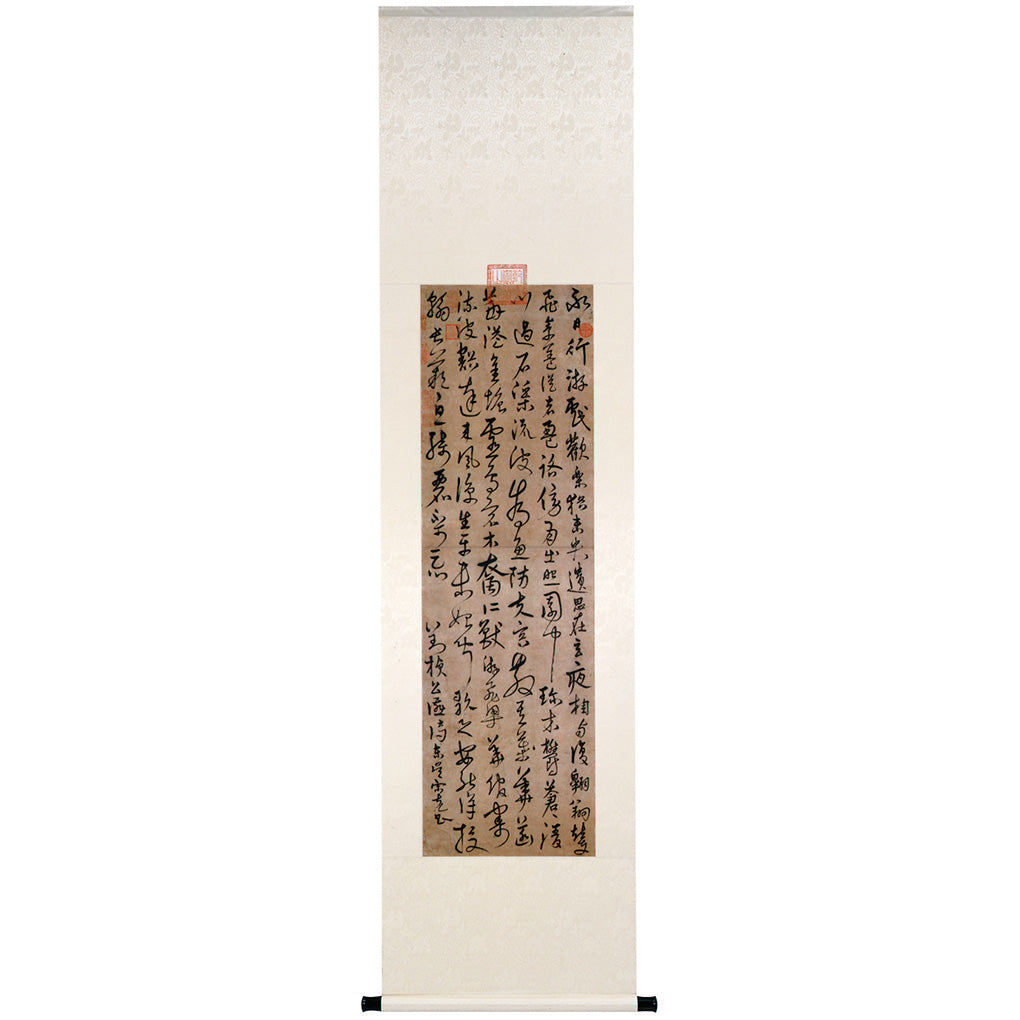 永日行游戲歡樂猶未央遺思在玄夜相與復翱翔輦車
飛素蓋從者盈路傍月出照園中珍木鬱蒼蒼清
川過石渠流波為魚防夫容散其華菡
萏溢金塘靈鳥宿水裔仁獸游飛梁華館寄
流波豁達來風涼生平未始聞歌之安能詳投
翰長歎息綺麗不可忘 劉楨公讌詩東吳宋克書